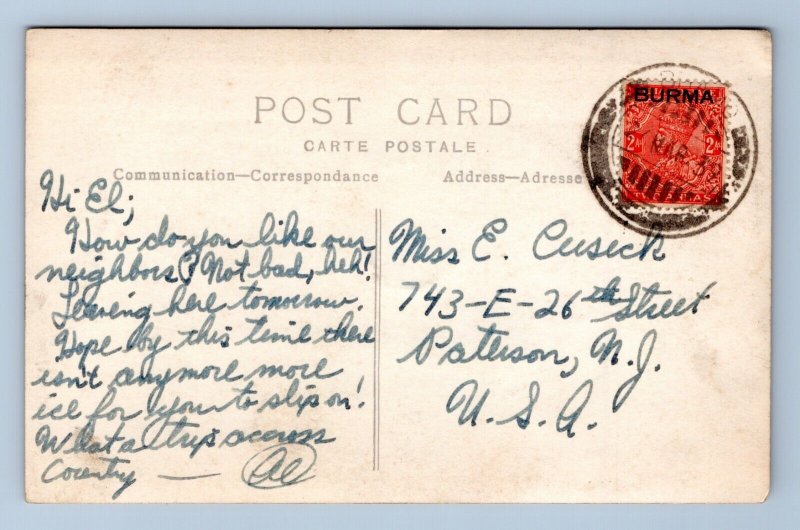 POST CARD
CARTE POSTALE.
Communication—Correspondance
Address—Adresse
BURMA
2 As
2 As
MAR 38
Hi El;
How do you like our
neighbors? Not bad, heh!
Leaving here tomorrow.
Hope by this time there
isn't anymore more
ice for you to slip on!
What a trip accross
Country — Al
Miss E. Cusick
743-E-26th Street
Paterson, N.J.
U.S.A.